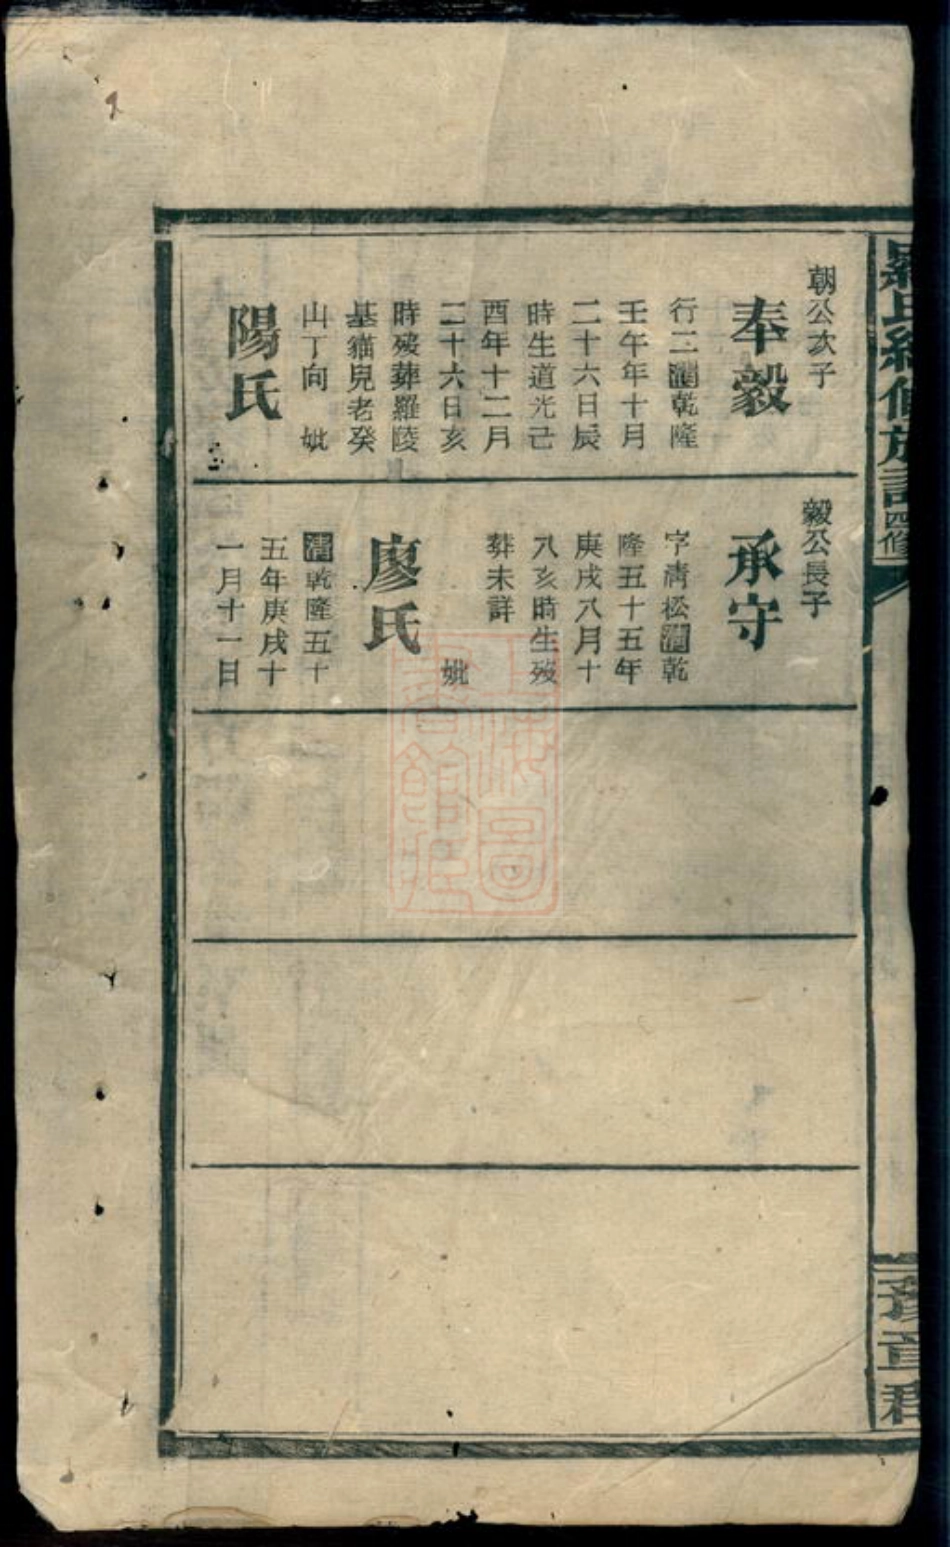 朝公次子
奉毅
行二清乾隆
壬午年十月
二十六日辰
時生道光己
酉年十二月
二十六日亥
時殁葬羅陵
基猫兒老癸
山丁向 妣
陽氏
毅公長子
承守
字清松清乾
隆五十五年
庚戌八月十
八亥時生殁
葬未詳
妣
廖氏
清乾隆五十
五年庚戌十
一月十一日
四修